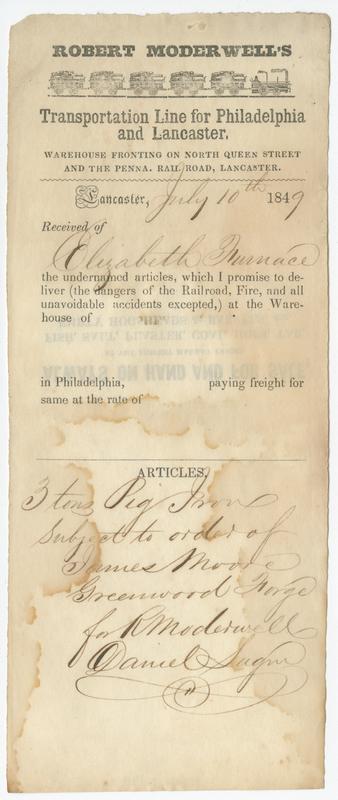 ROBERT MODERWELL'S
Transportation Line for Philadelphia
and Lancaster.
WAREHOUSE FRONTING ON NORTH QUEEN STREET
AND THE PENNA. RAIL ROAD, LANCASTER.
Lancaster, July 10th 1849
Received of
Elizabeth Furnace
the undernamed articles, which I promise to de-
liver (the dangers of the Railroad, Fire, and all
unavoidable accidents excepted,) at the Ware-
house of
in Philadelphia, paying freight for
same at the rate of
ARTICLES.
3 tons Pig Iron
Subject to order of
James Moore
Greenwood Forge
for R Moderwell
Daniel